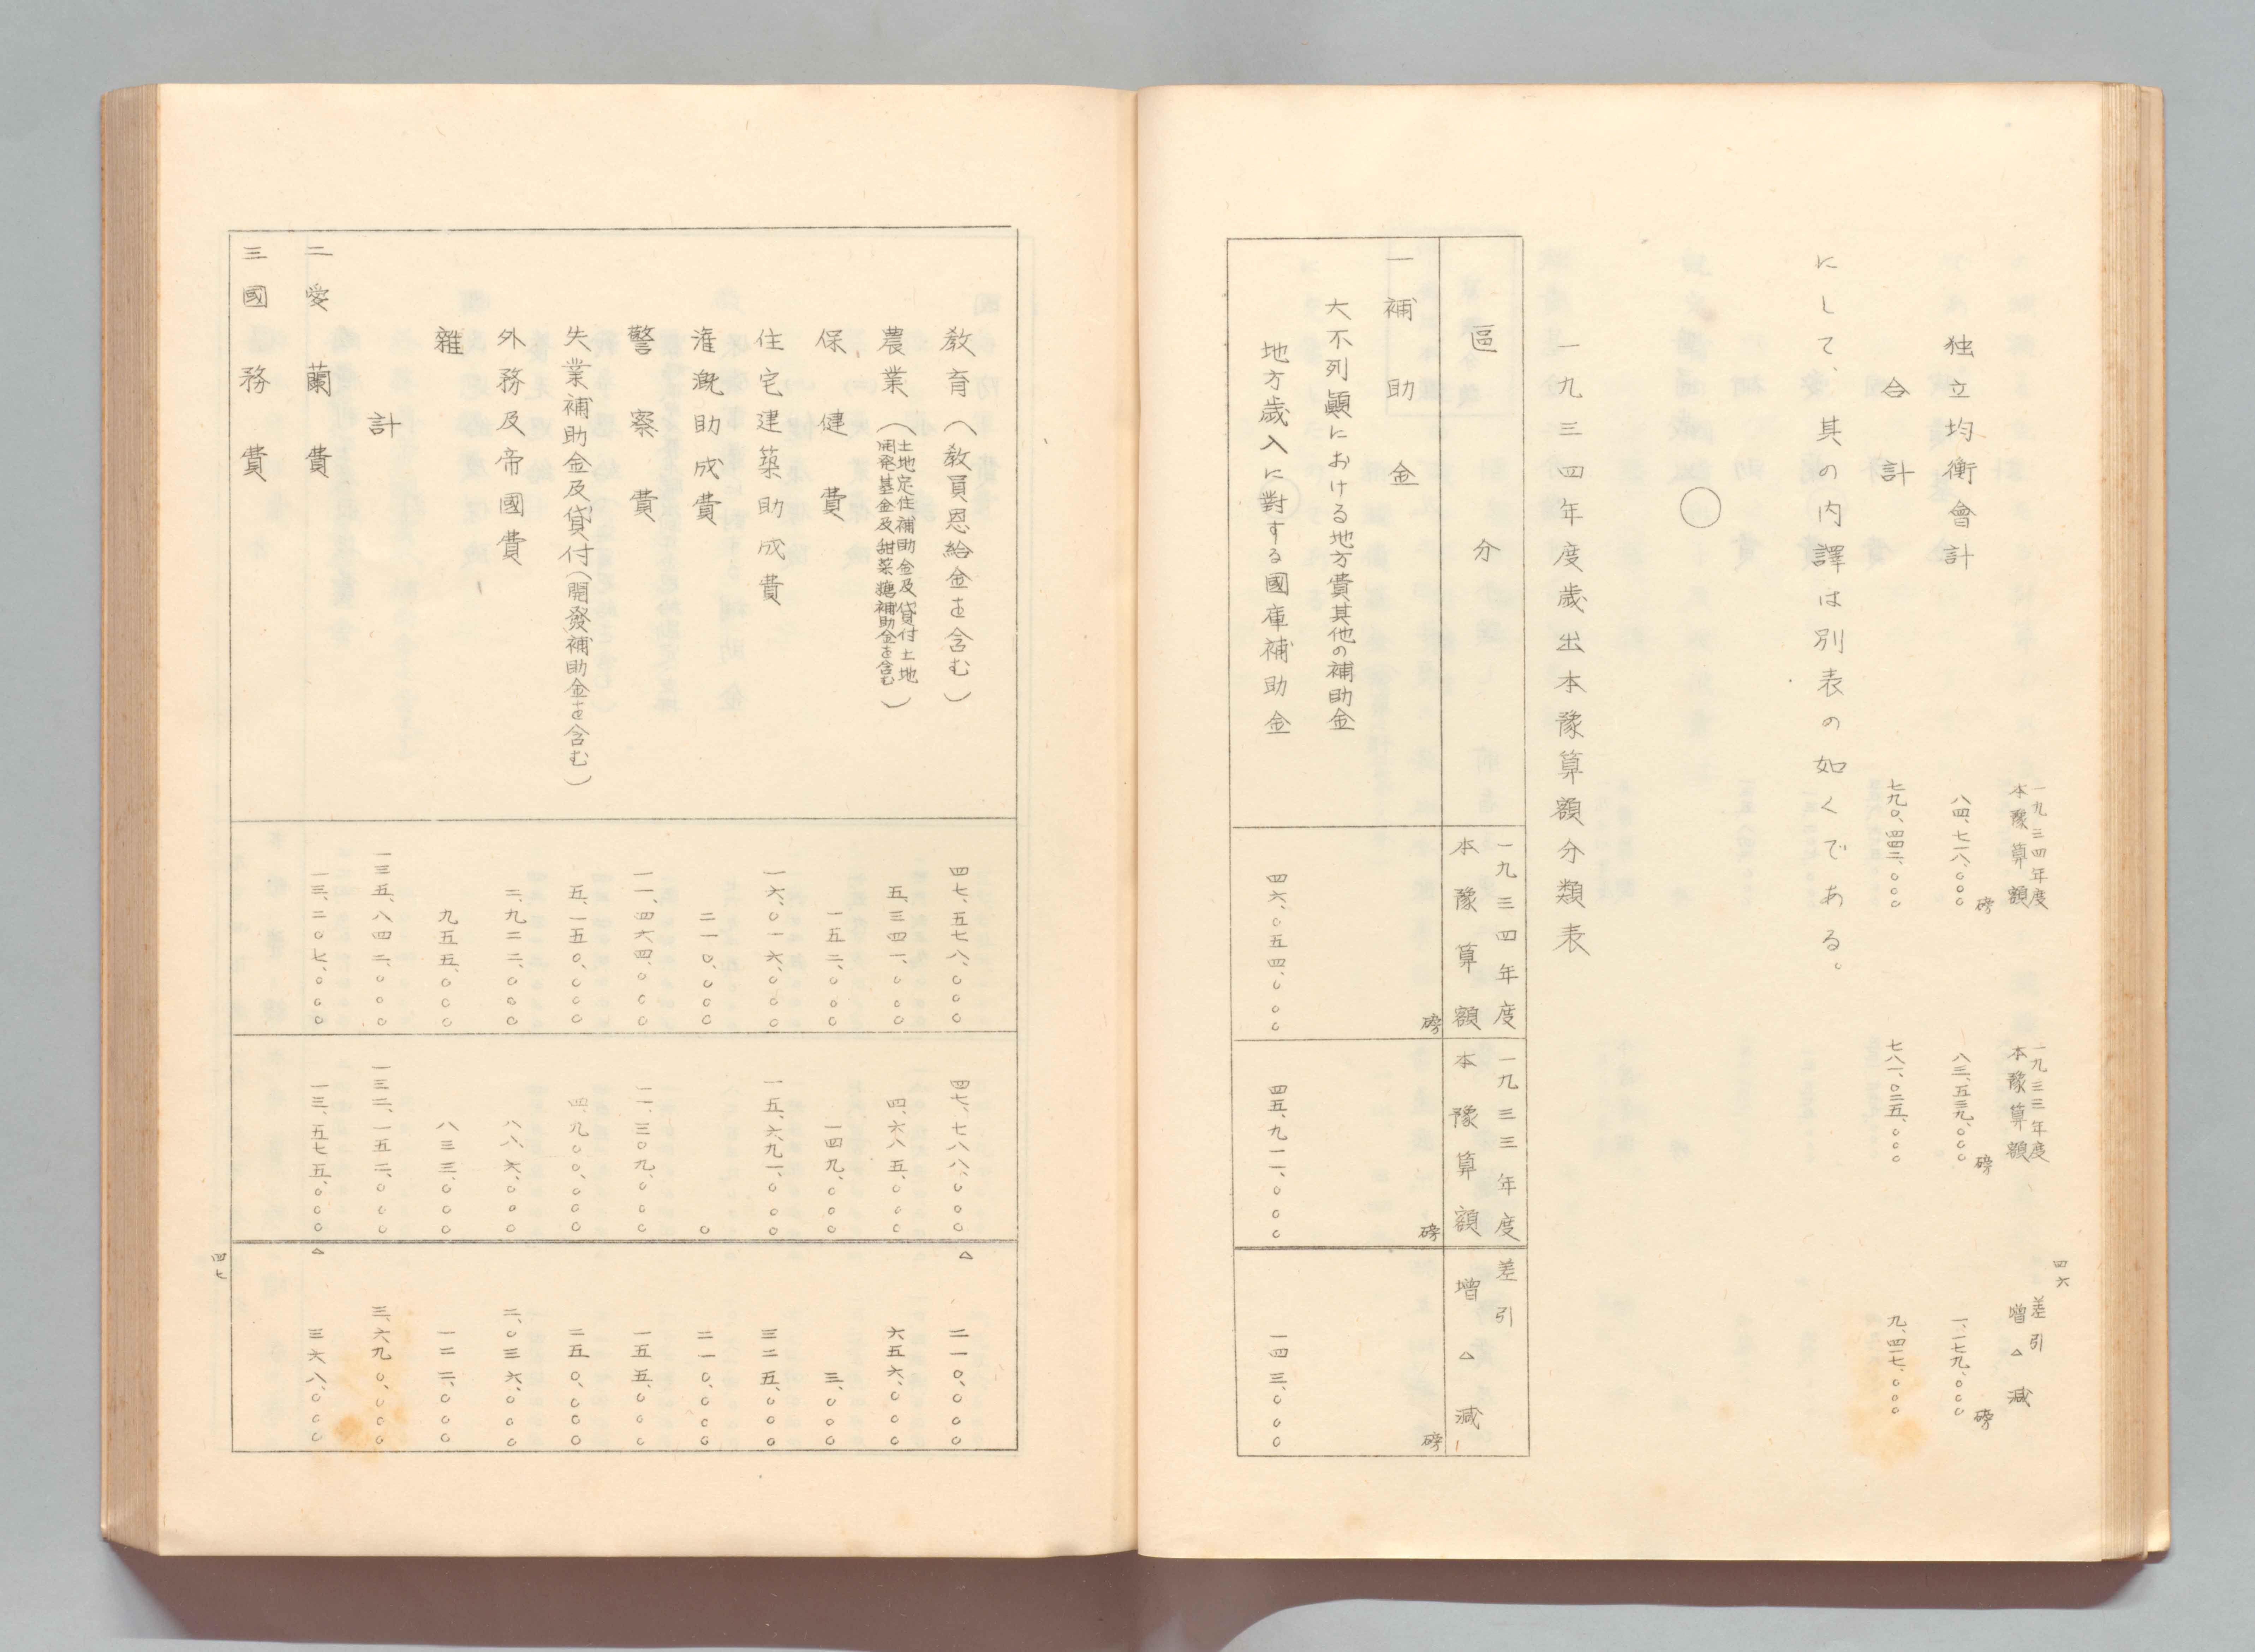 四六
一九三四年度
本豫算額
一九三三年度
本豫算額
差引
增△減
独立均衡會計 八四、七一八、〇〇〇磅 八三、五三九、〇〇〇磅 一、一七九、〇〇〇磅
合計 七九〇、四四二、〇〇〇 七八一、〇二五、〇〇〇 九、四一七、〇〇〇
にして、其の内譯は別表の如くである。
〇
一九三四年度歳出本豫算額分類表
區分
一九三四年度
本豫算額
一九三三年度
本豫算額
差引
增△減
一補助金 磅 磅 磅
大不列顚における地方費其他の補助金
地方歳入に對する國庫補助金 四六、〇五四、〇〇〇 四五、九一一、〇〇〇 一四三、〇〇〇
教育(教員恩給金を含む) 四七、五七八、〇〇〇 四七、七八八、〇〇〇 △二一〇、〇〇〇
農業(土地定住補助金及貸付土地
開発基金及甜菜糖補助金を含む) 五、三四一、〇〇〇 四、六八五、〇〇〇 六五六、〇〇〇
保健費 一五二、〇〇〇 一四九、〇〇〇 三、〇〇〇
住宅建築助成費 一六、〇一六、〇〇〇 一五、六九一、〇〇〇 三二五、〇〇〇
灌漑助成費 二一〇、〇〇〇 〇 二一〇、〇〇〇
警察費 一一、四六四、〇〇〇 一一、三〇九、〇〇〇 一五五、〇〇〇
失業補助金及貸付(開發補助金を含む) 五、一五〇、〇〇〇 四、九〇〇、〇〇〇 二五〇、〇〇〇
外務及帝國費 二、九二二、〇〇〇 八八六、〇〇〇 二、〇三六、〇〇〇
雜 九五五、〇〇〇 八三三、〇〇〇 一二二、〇〇〇
計 一三五、八四二、〇〇〇 一三二、一五二、〇〇〇 三、六九〇、〇〇〇
二愛蘭費 一三、二〇七、〇〇〇 一三、五七五、〇〇〇 △三六八、〇〇〇
三國務費
四七